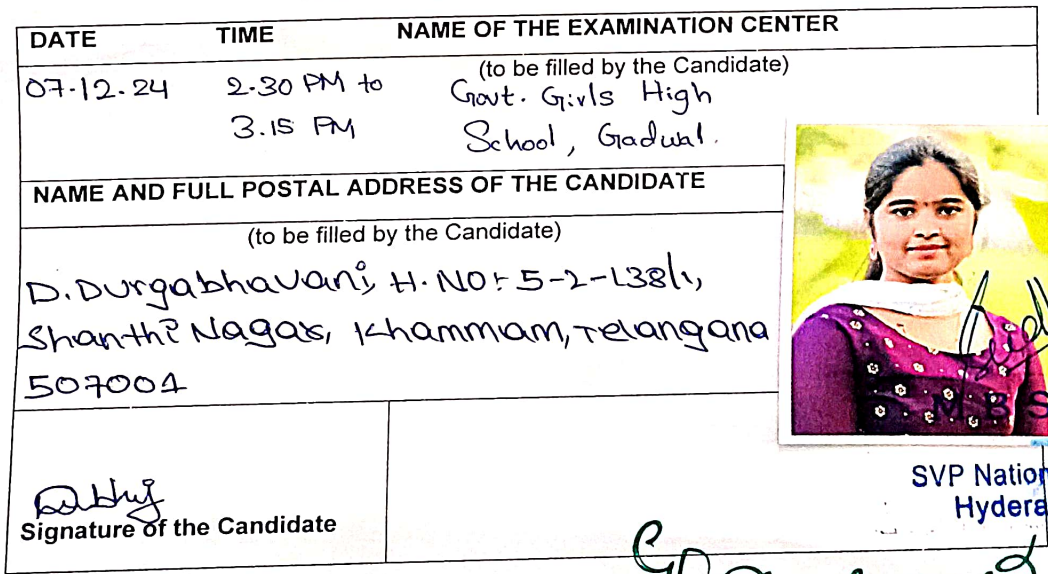 DATE TIME NAME OF THE EXAMINATION CENTER
(to be filled by the Candidate)
07.12.24 2.30 PM to Govt. Girls High
3.15 PM School, Gadwal.
NAME AND FULL POSTAL ADDRESS OF THE CANDIDATE
(to be filled by the Candidate)
D.Durgabhavani, H.NO: 5-2-138/1,
Shanthi Nagar, Khammam, Telangana
507001
M B S
SVP Nation
Hydera
Signature of the Candidate